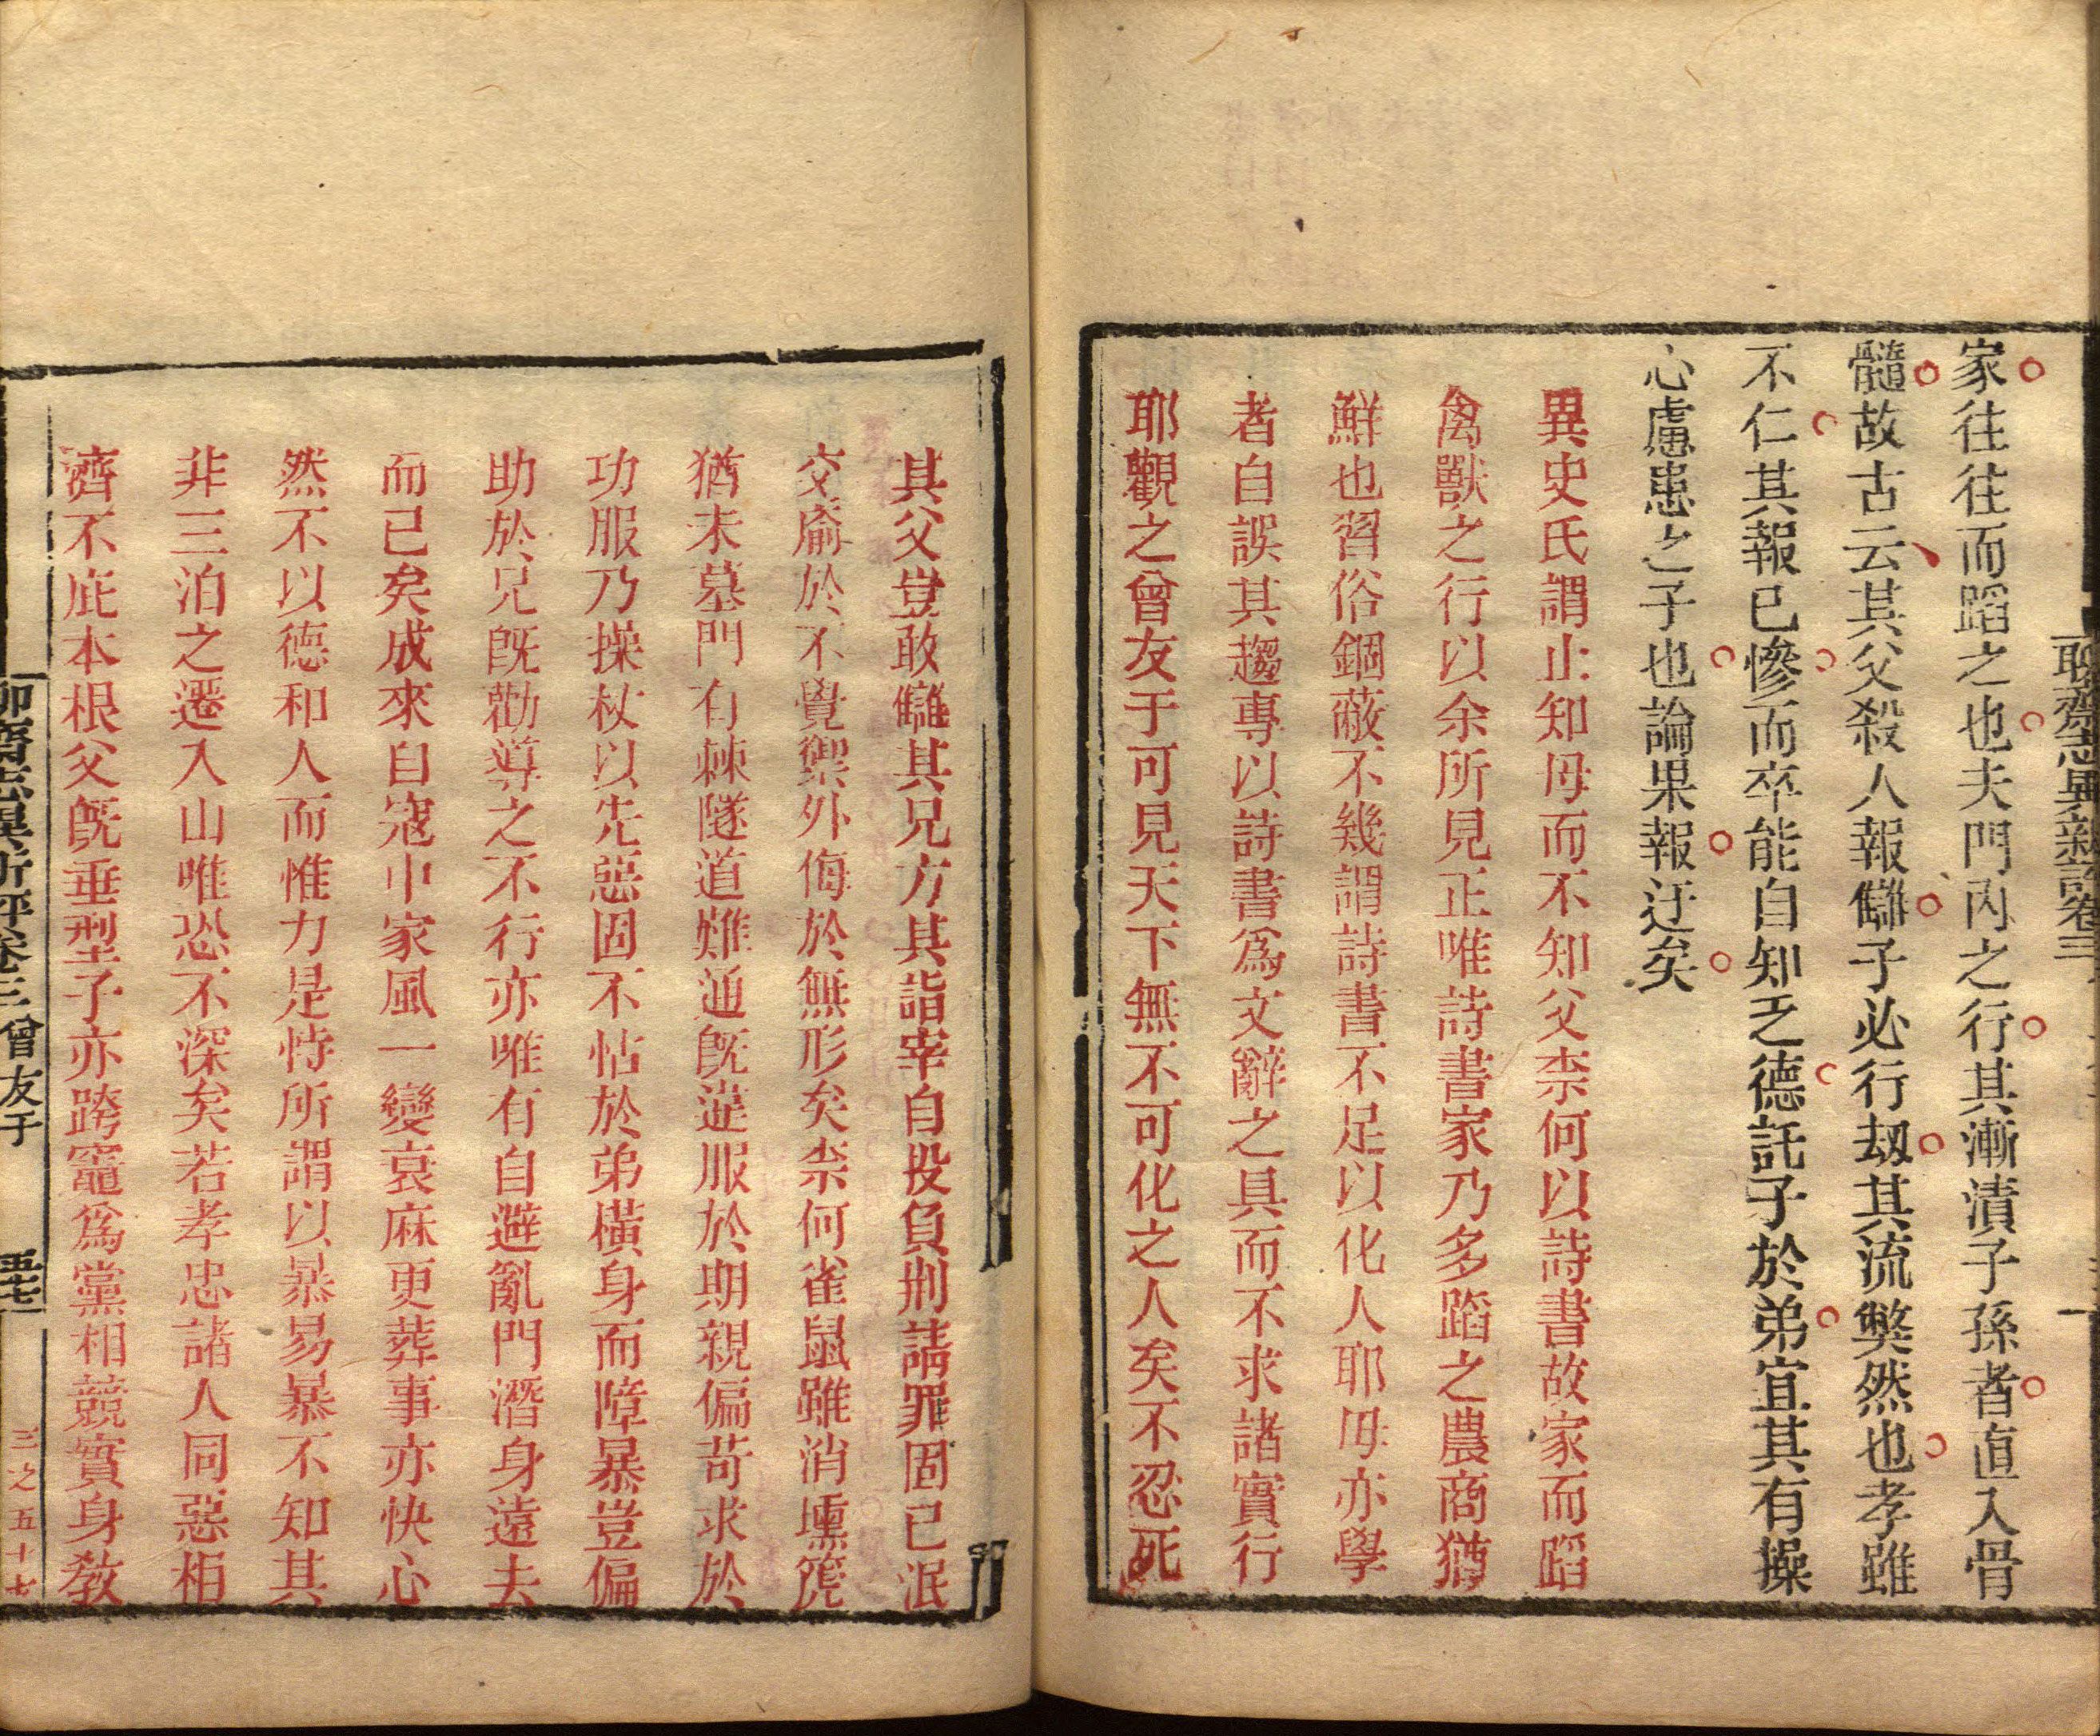 聊齋志異新評卷三
家往往而蹈之也夫門內之行其漸漬子孫者直入骨
髓故古云其父殺人報讎子必行刼其流獘然也孝雖
不仁其報已慘而卒能自知乏德託子於弟宜其有操
心慮患之子也論果報迂矣
異史氏謂止知母而不知父柰何以詩書故家而蹈
禽獸之行以余所見正唯詩書家乃多蹈之農商猶
鮮也習俗錮蔽不幾謂詩書不足以化人耶毋亦學
者自誤其趨專以詩書爲文辭之具而不求諸實行
耶觀之曾友于可見天下無不可化之人矣不忍死
其父豈敢讎其兄方其詣宰自投負荆請罪固已泯
交瘉於不覺禦外侮於無形矣柰何雀鼠雖消壎箎
猶未墓門有棘隧道難通旣違服於期親偏苛求於
功服乃操杖以先惡固不怗於弟橫身而障暴豈偏
助於兄旣勸導之不行亦唯有自避亂門潛身遠去
而已矣成來自寇中家風一變哀麻更葬事亦快心
然不以德和人而惟力是恃所謂以暴易暴不知其
非三泊之遷入山唯恐不深矣若孝忠諸人同惡相
濟不庇本根父旣垂型子亦跨竈爲黨相競實身敎
聊齋志異新評卷三 曾友于 五七
三之五十七